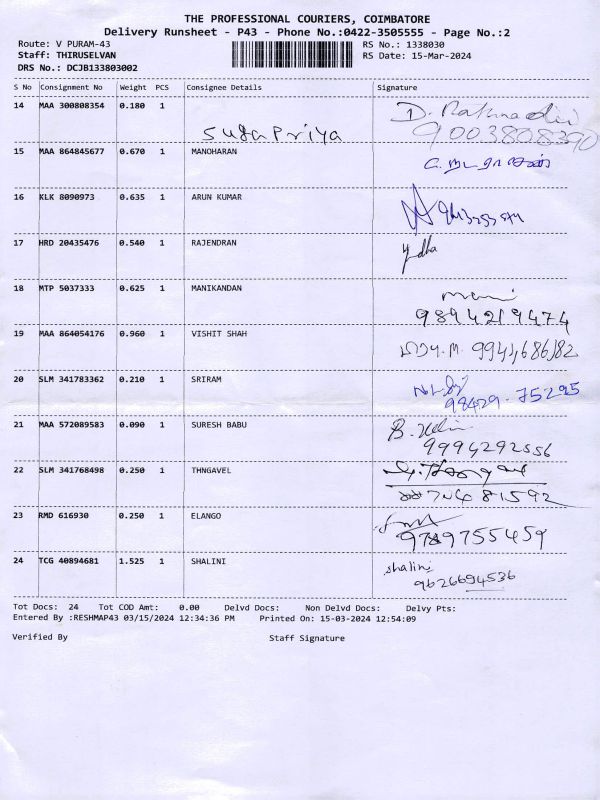 THE PROFESSIONAL COURIERS, COIMBATORE
Delivery Runsheet - P43 - Phone No.:0422-3505555 - Page No.:2
Route: V PURAM-43 RS No.: 1338030
Staff: THIRUSELVAN RS Date: 15-Mar-2024
DRS No.: DCJB133803002
S No Consignment No Weight PCS Consignee Details Signature
14 MAA 300808354 0.180 1 D. Rathnadevi
SugaPriya 9003808390
15 MAA 864845677 0.670 1 MANOHARAN
16 KLK 8090973 0.635 1 ARUN KUMAR
17 HRD 20435476 0.540 1 RAJENDRAN
18 MTP 5037333 0.625 1 MANIKANDAN mani
9894219474
19 MAA 864054176 0.960 1 VISHIT SHAH
20 SLM 341783362 0.210 1 SRIRAM
98429-75295
21 MAA 572089583 0.090 1 SURESH BABU
9994292556
22 SLM 341768498 0.250 1 THNGAVEL
23 RMD 616930 0.250 1 ELANGO
9789755459
24 TCG 40894681 1.525 1 SHALINI shalini
9626694536
Tot Docs: 24 Tot COD Amt: 0.00 Delvd Docs: Non Delvd Docs: Delvy Pts:
Entered By :RESHMAP43 03/15/2024 12:34:36 PM Printed On: 15-03-2024 12:54:09
Verified By Staff Signature